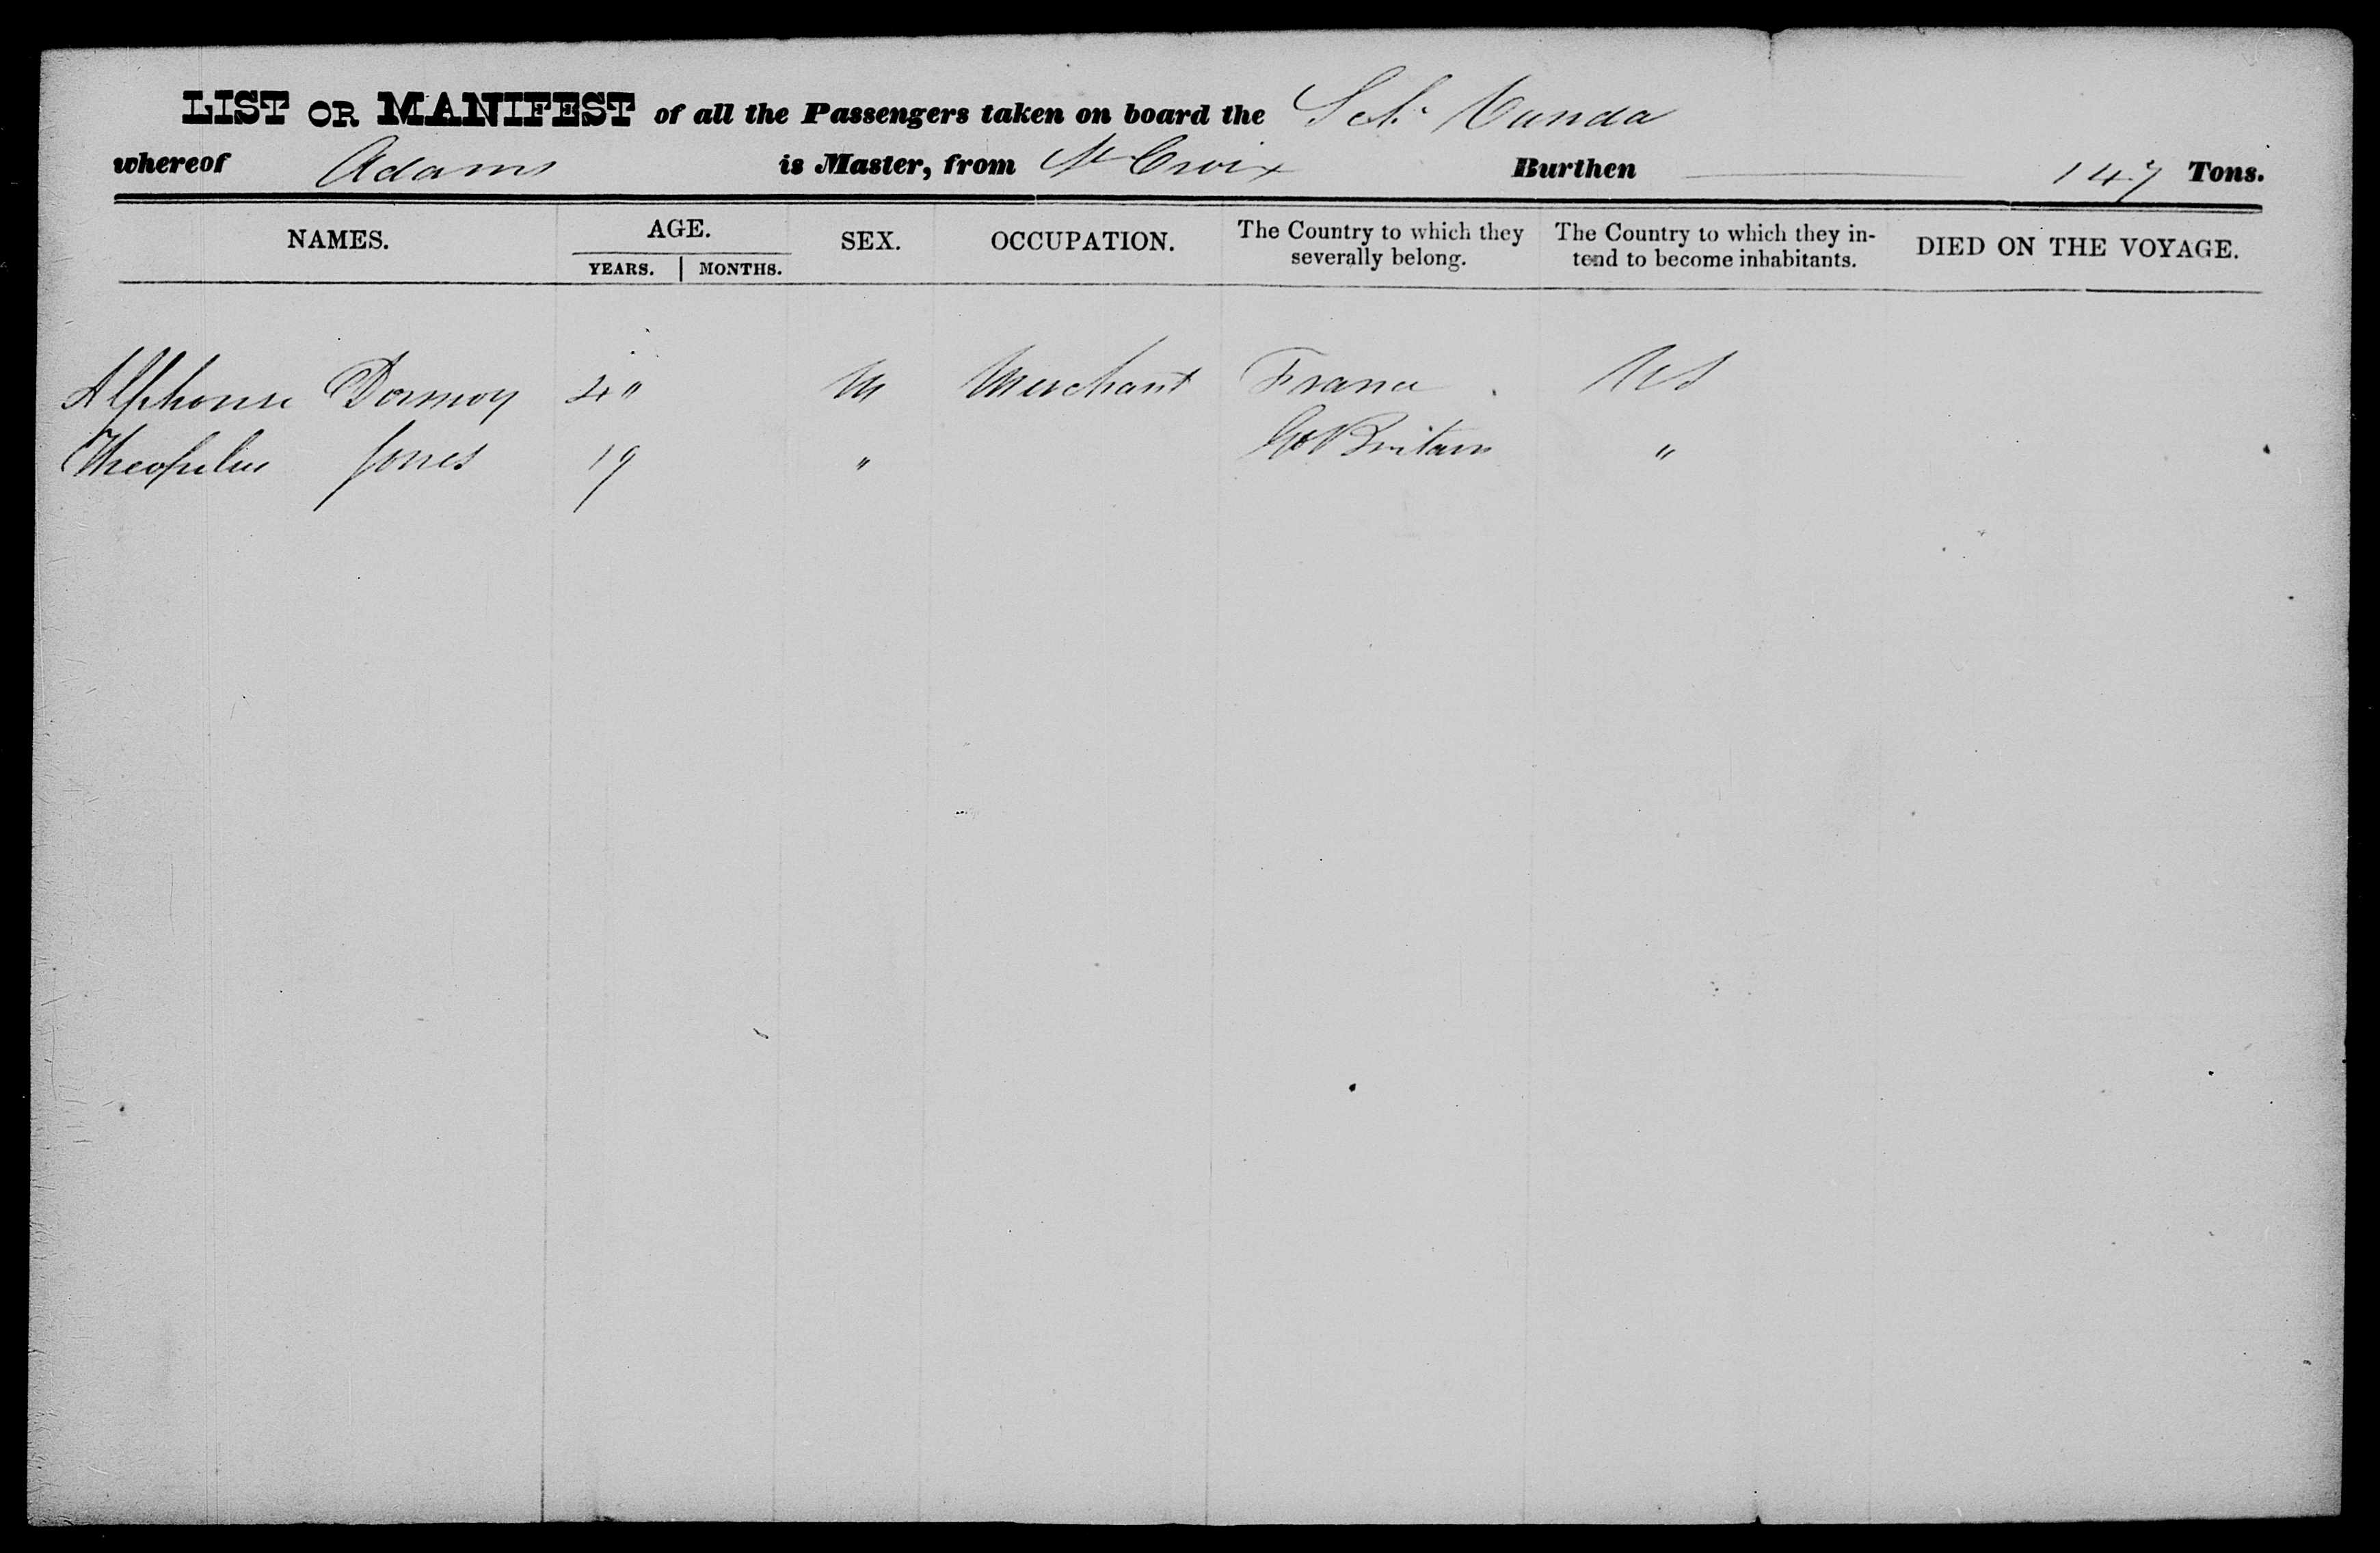 LIST OR MANIFEST of all the Passengers taken on board the Sch.
whereof Adams is Master, from St Croix Burthen 147 Tons.
NAMES. AGE. SEX. OCCUPATION. The Country to which they severally belong. The Country to which they in-tend to become inhabitants. DIED ON THE VOYAGE.
YEARS. MONTHS.
Alphonse Dormoy M Merchant France US
Theophilus Jones 19 " Gt Britain "